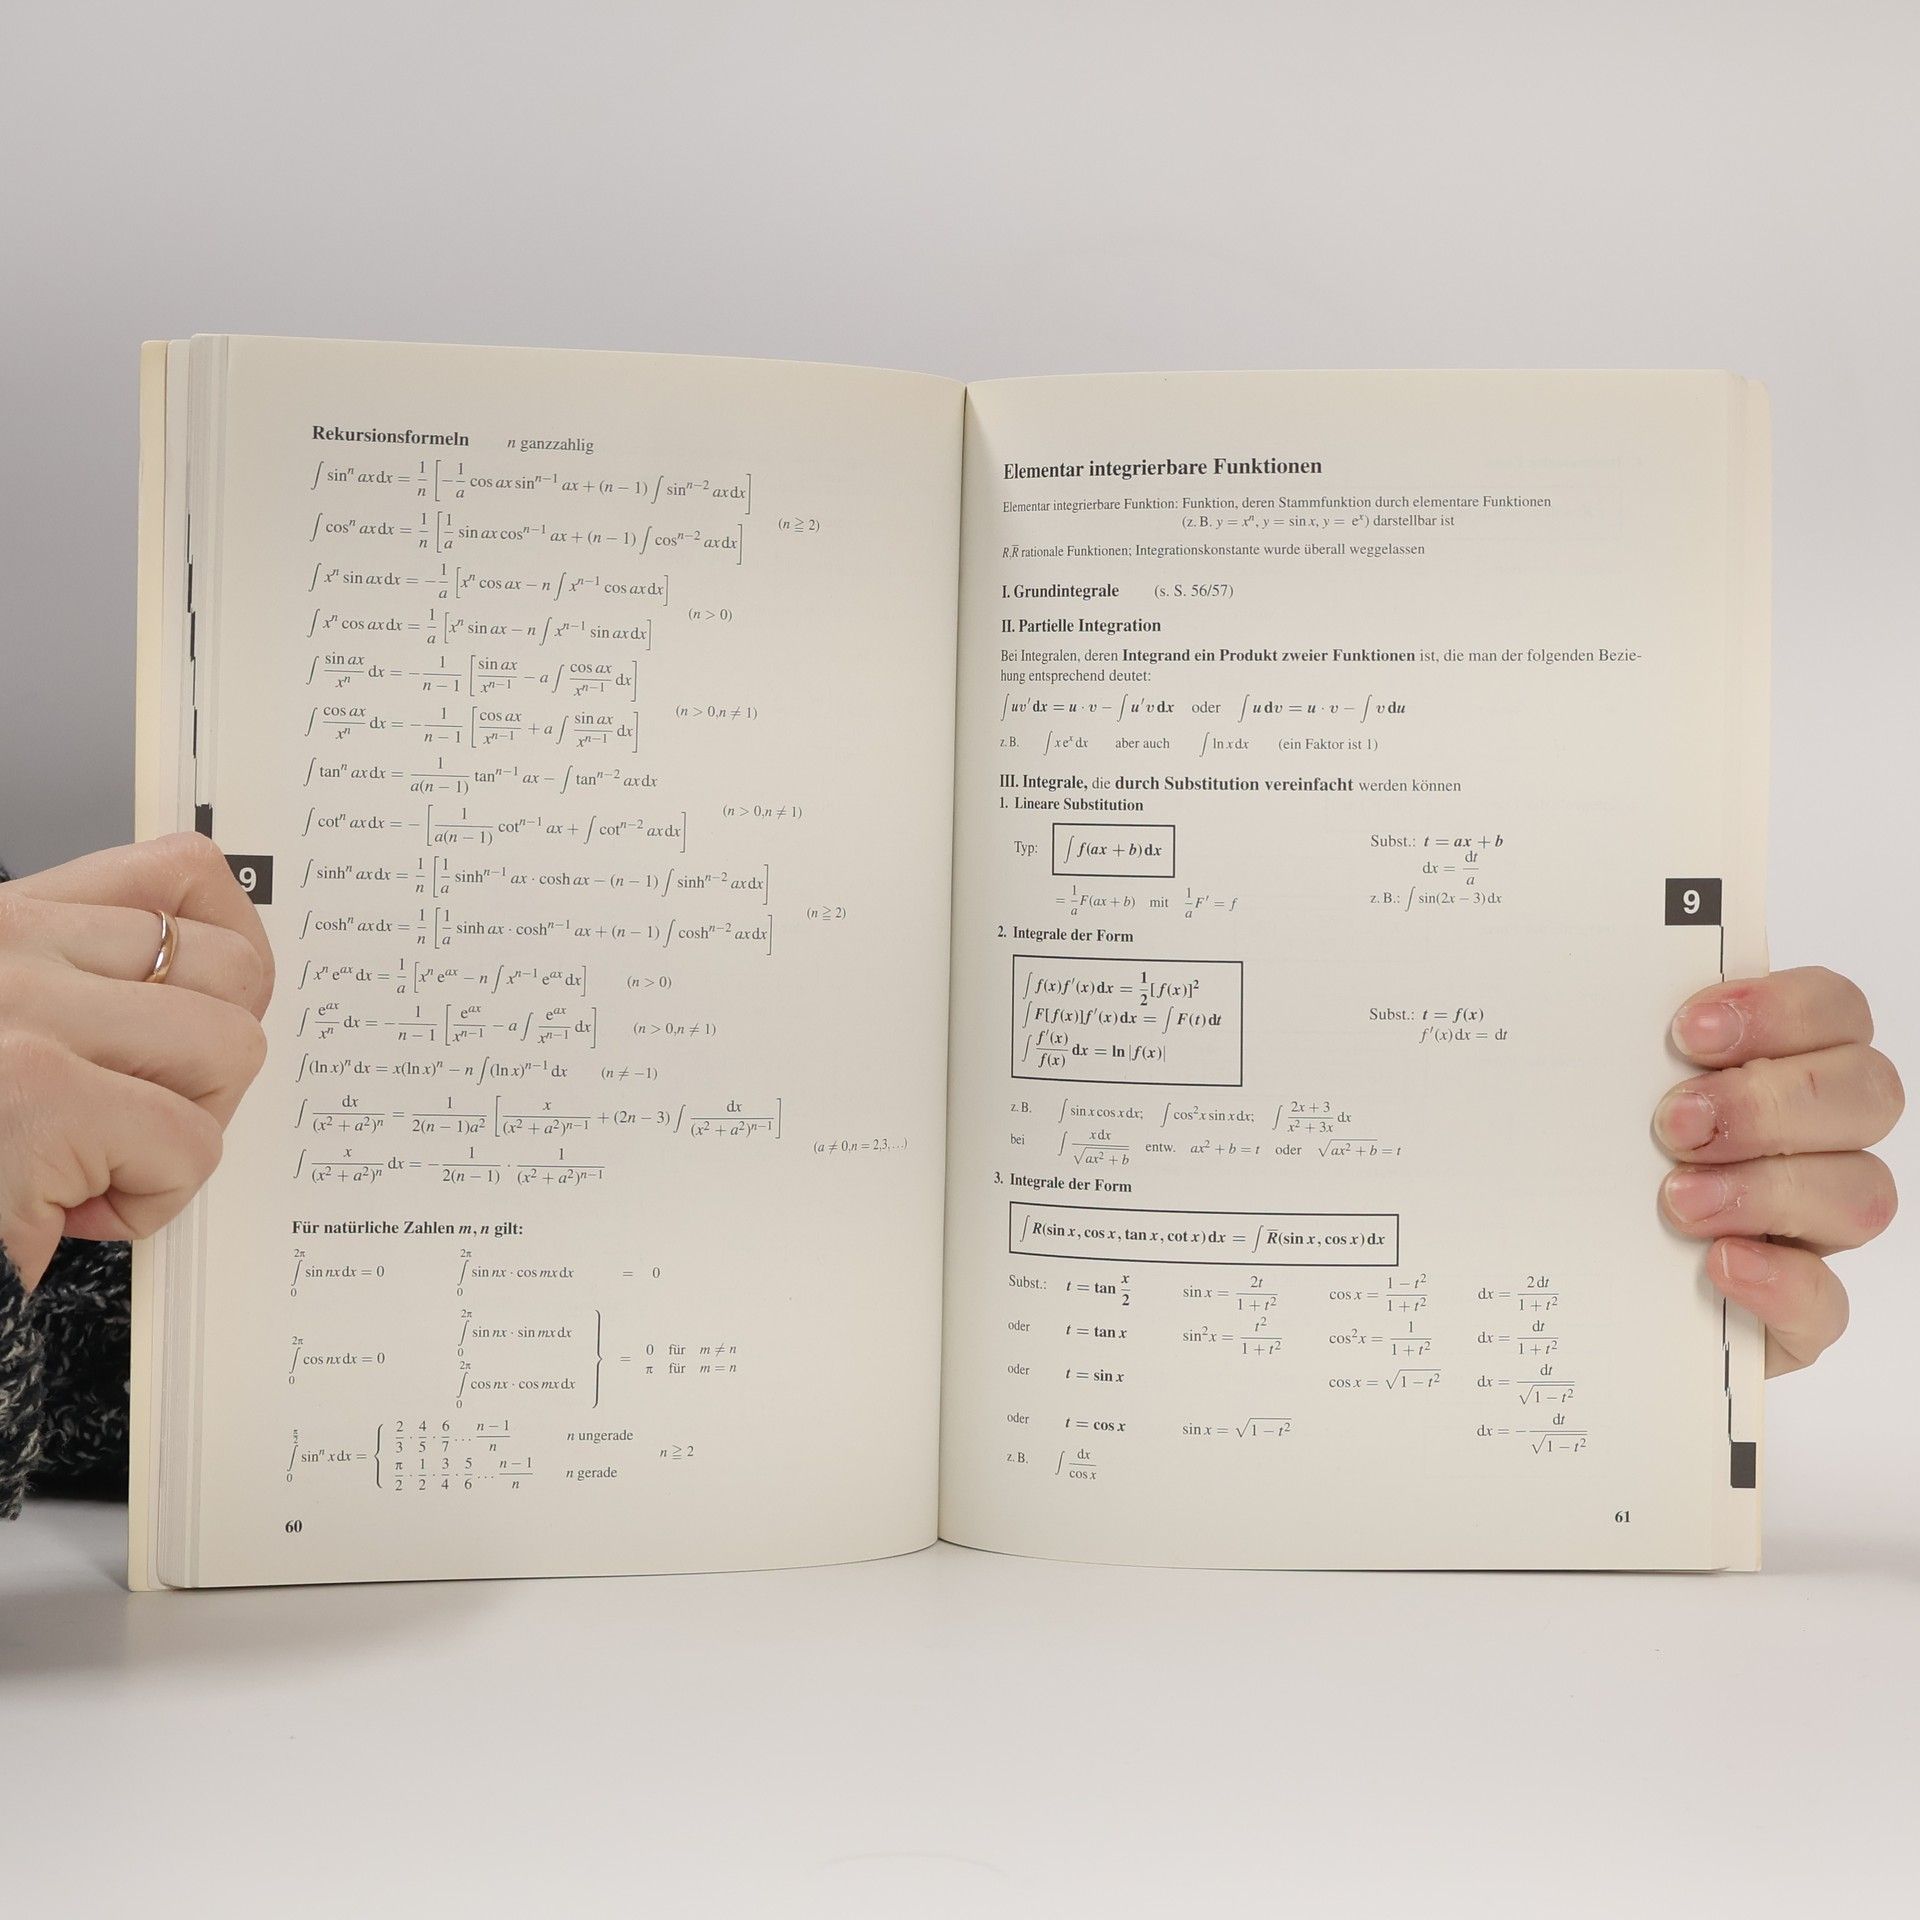 Rekursionsformeln n ganzzahlig
∫ sinⁿ ax dx = 1/n [−1/a cos ax sinⁿ⁻¹ ax + (n − 1) ∫ sinⁿ⁻² ax dx]
∫ cosⁿ ax dx = 1/n [1/a sin ax cosⁿ⁻¹ ax + (n − 1) ∫ cosⁿ⁻² ax dx] (n ≧ 2)
∫ xⁿ sin ax dx = −1/a [xⁿ cos ax − n ∫ xⁿ⁻¹ cos ax dx]
∫ xⁿ cos ax dx = 1/a [xⁿ sin ax − n ∫ xⁿ⁻¹ sin ax dx] (n > 0)
∫ sin ax/xⁿ dx = −1/(n − 1) [sin ax/xⁿ⁻¹ − a ∫ cos ax/xⁿ⁻¹ dx]
∫ cos ax/xⁿ dx = −1/(n − 1) [cos ax/xⁿ⁻¹ + a ∫ sin ax/xⁿ⁻¹ dx] (n > 0, n ≠ 1)
∫ tanⁿ ax dx = 1/(a(n − 1)) tanⁿ⁻¹ ax − ∫ tanⁿ⁻² ax dx
∫ cotⁿ ax dx = −[1/(a(n − 1)) cotⁿ⁻¹ ax + ∫ cotⁿ⁻² ax dx] (n > 0, n ≠ 1)
∫ sinhⁿ ax dx = 1/n [1/a sinhⁿ⁻¹ ax · cosh ax − (n − 1) ∫ sinhⁿ⁻² ax dx]
9
∫ coshⁿ ax dx = 1/n [1/a sinh ax · coshⁿ⁻¹ ax + (n − 1) ∫ coshⁿ⁻² ax dx] (n ≧ 2)
∫ xⁿ eᵃˣ dx = 1/a [xⁿ eᵃˣ − n ∫ xⁿ⁻¹ eᵃˣ dx] (n > 0)
∫ eᵃˣ/xⁿ dx = −1/(n − 1) [eᵃˣ/xⁿ⁻¹ − a ∫ eᵃˣ/xⁿ⁻¹ dx] (n > 0, n ≠ 1)
∫ (ln x)ⁿ dx = x(ln x)ⁿ − n ∫ (ln x)ⁿ⁻¹ dx (n ≠ −1)
∫ dx/(x² + a²)ⁿ = 1/(2(n − 1)a²) [x/(x² + a²)ⁿ⁻¹ + (2n − 3) ∫ dx/(x² + a²)ⁿ⁻¹]
(a ≠ 0, n = 2,3,...)
∫ x/(x² + a²)ⁿ dx = −1/(2(n − 1)) · 1/(x² + a²)ⁿ⁻¹
Für natürliche Zahlen m, n gilt:
∫₀^2π sin nx dx = 0 ∫₀^2π sin nx · cos mx dx = 0
∫₀^2π sin nx · sin mx dx
∫₀^2π cos nx dx = 0 } = 0 für m ≠ n
π für m = n
∫₀^2π cos nx · cos mx dx
∫₀^π/2 sinⁿ x dx = { 2/3 · 4/5 · 6/7 ... (n − 1)/n n ungerade
π/2 · 1/2 · 3/4 · 5/6 ... (n − 1)/n n gerade n ≧ 2
60
Elementar integrierbare Funktionen
Elementar integrierbare Funktion: Funktion, deren Stammfunktion durch elementare Funktionen
(z. B. y = xⁿ, y = sin x, y = eˣ) darstellbar ist
R,R̅ rationale Funktionen; Integrationskonstante wurde überall weggelassen
I. Grundintegrale (s. S. 56/57)
II. Partielle Integration
Bei Integralen, deren Integrand ein Produkt zweier Funktionen ist, die man der folgenden Bezie-
hung entsprechend deutet:
∫ uv′ dx = u · v − ∫ u′v dx oder ∫ u dv = u · v − ∫ v du
z. B. ∫ x eˣ dx aber auch ∫ ln x dx (ein Faktor ist 1)
III. Integrale, die durch Substitution vereinfacht werden können
1. Lineare Substitution
Typ: ∫ f(ax + b) dx Subst.: t = ax + b
dx = dt/a
= 1/a F(ax + b) mit 1/a F′ = f z. B.: ∫ sin(2x − 3) dx
9
2. Integrale der Form
∫ f(x) f′(x) dx = 1/2 [f(x)]²
∫ F[f(x)] f′(x) dx = ∫ F(t) dt Subst.: t = f(x)
f′(x) dx = dt
∫ f′(x)/f(x) dx = ln |f(x)|
z. B. ∫ sin x cos x dx; ∫ cos² x sin x dx; ∫ (2x + 3)/(x² + 3x) dx
bei ∫ x dx/√(ax² + b) entw. ax² + b = t oder √(ax² + b) = t
3. Integrale der Form
∫ R(sin x, cos x, tan x, cot x) dx = ∫ R̅(sin x, cos x) dx
Subst.: t = tan x/2 sin x = 2t/(1 + t²) cos x = (1 − t²)/(1 + t²) dx = 2 dt/(1 + t²)
oder t = tan x sin² x = t²/(1 + t²) cos² x = 1/(1 + t²) dx = dt/(1 + t²)
oder t = sin x cos x = √(1 − t²) dx = dt/√(1 − t²)
oder t = cos x sin x = √(1 − t²) dx = −dt/√(1 − t²)
z. B. ∫ dx/cos x
61